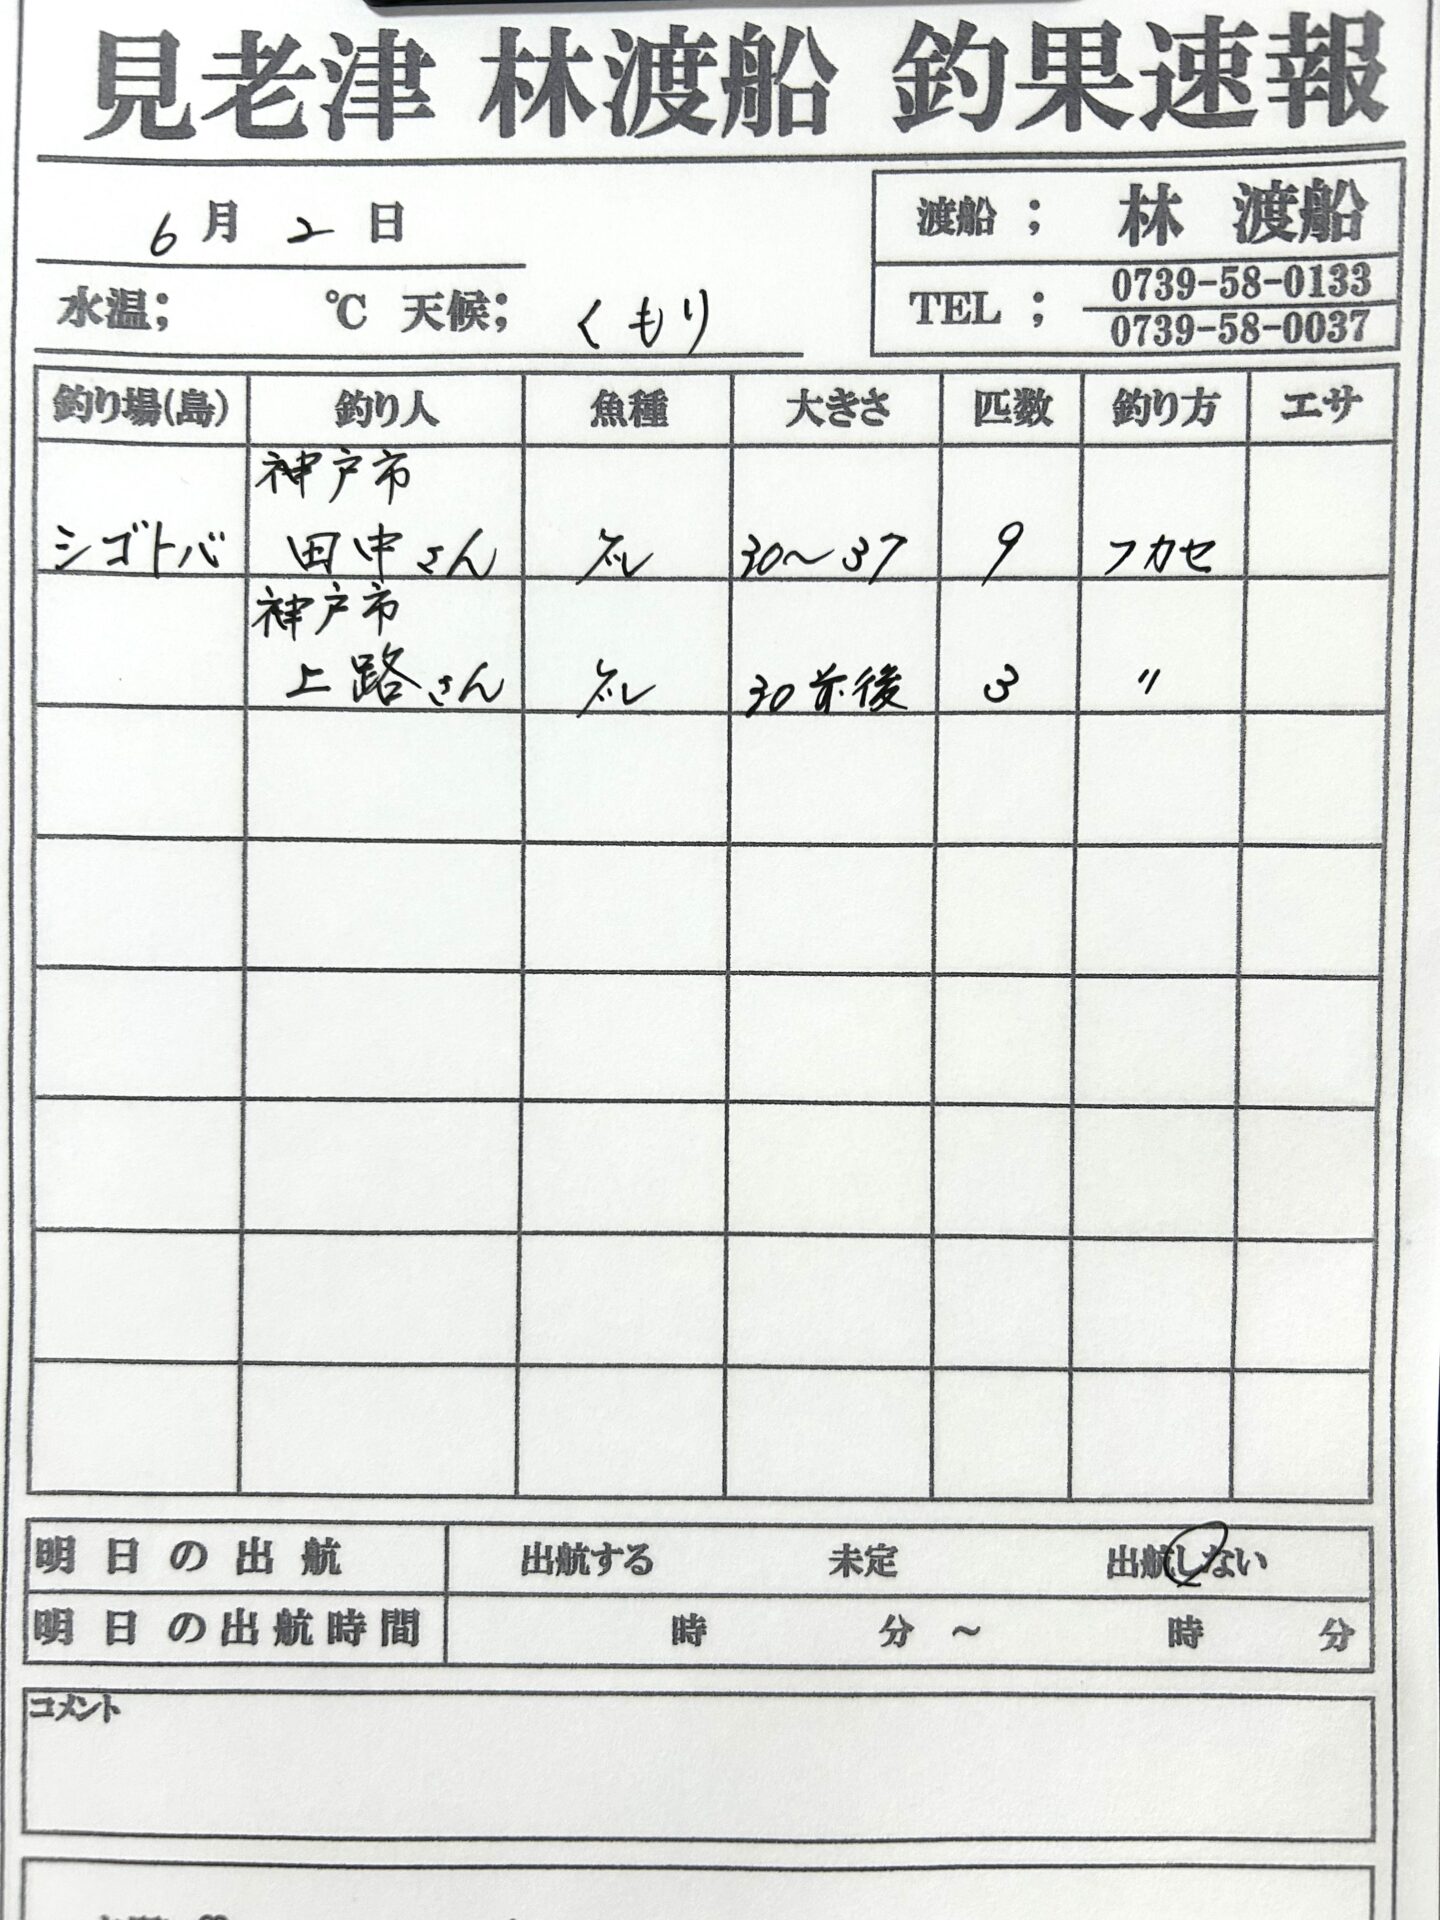 見老津 林渡船 釣果速報
6月2日
渡船 ; 林 渡船
水温; ℃ 天候; くもり
TEL ; 0739-58-0133
0739-58-0037
釣り場(島) 釣り人 魚種 大きさ 匹数 釣り方 エサ
神戸市
シゴトバ 田中さん グレ 30～37 9 フカセ
神戸市
上路さん グレ 30前後 3 〃
明日の出航 出航する 未定 出航しない
明日の出航時間 時 分 ～ 時 分
コメント